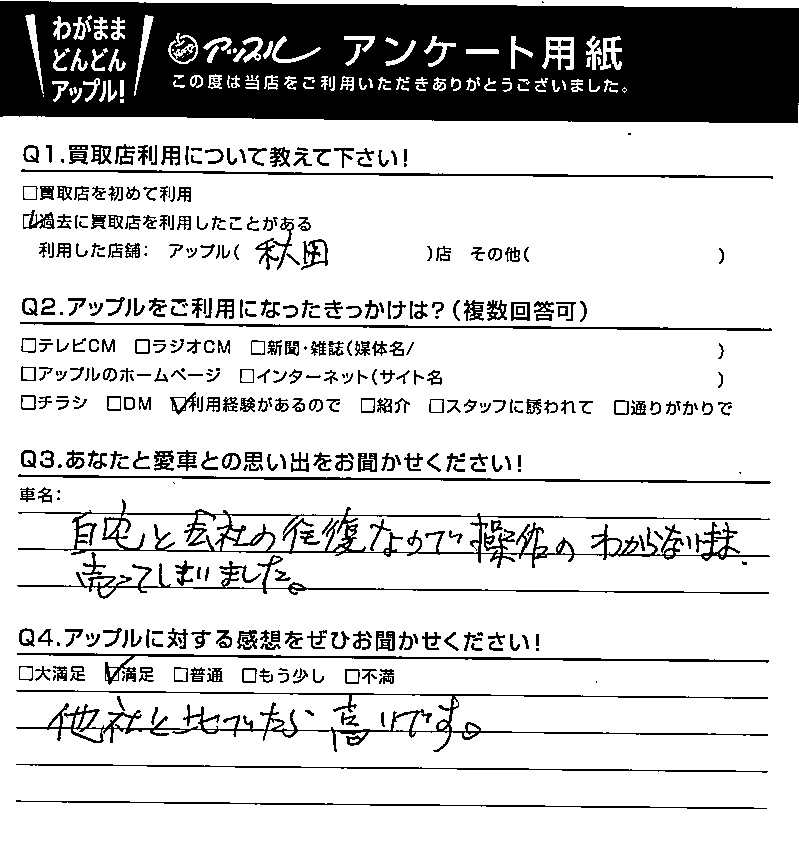 わがまま
どんどん
アップル!
アップル アンケート用紙
この度は当店をご利用いただきありがとうございました。
Q1.買取店利用について教えて下さい!
□買取店を初めて利用
☑過去に買取店を利用したことがある
利用した店舗: アップル( 秋田 )店 その他( )
Q2.アップルをご利用になったきっかけは?(複数回答可)
□テレビCM □ラジオCM □新聞・雑誌(媒体名/ )
□アップルのホームページ □インターネット(サイト名 )
□チラシ □DM ☑利用経験があるので □紹介 □スタッフに誘われて □通りがかりで
Q3.あなたと愛車との思い出をお聞かせください!
車名:
自宅と会社の往復なので操作のわからないまま
売ってしまいました。
Q4.アップルに対する感想をぜひお聞かせください!
□大満足 ☑満足 □普通 □もう少し □不満
他社と比べたら高いです。